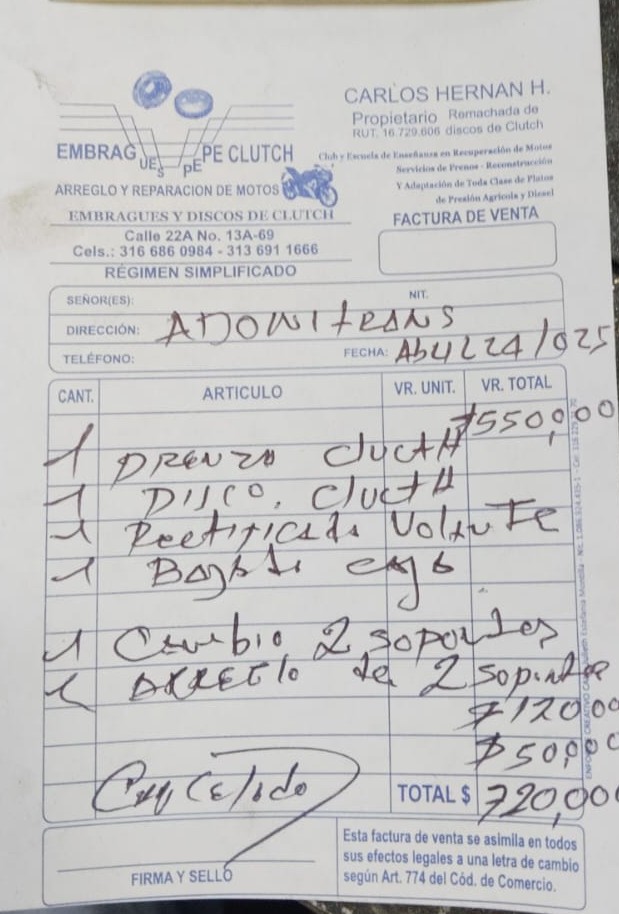 EMBRAGUES PEPE CLUTCH
ARREGLO Y REPARACION DE MOTOS
EMBRAGUES Y DISCOS DE CLUTCH
Calle 22A No. 13A-69
Cels.: 316 686 0984 - 313 691 1666
RÉGIMEN SIMPLIFICADO
CARLOS HERNAN H.
Propietario Remachada de
RUT. 16.729.606 discos de Clutch
Club y Escuela de Enseñanza en Recuperación de Motos
Servicios de Frenos - Reconstrucción
Y Adaptación de Toda Clase de Platos
de Presión Agrícola y Diesel
FACTURA DE VENTA
SEÑOR(ES): NIT.
DIRECCIÓN: ADONITRANS
TELÉFONO: FECHA: Abril 24/025
CANT. ARTICULO VR. UNIT. VR. TOTAL
$550,000
1 PRENZA CluctH
1 DISCO. CluctH
1 Rectificada Volante
1 Bajada caja
1 Cambio 2 soportes
1 ARREGLO de 2 soportes
$120000
$50,000
Cancelado
TOTAL $ 720,000
FIRMA Y SELLO
Esta factura de venta se asimila en todos
sus efectos legales a una letra de cambio
según Art. 774 del Cód. de Comercio.